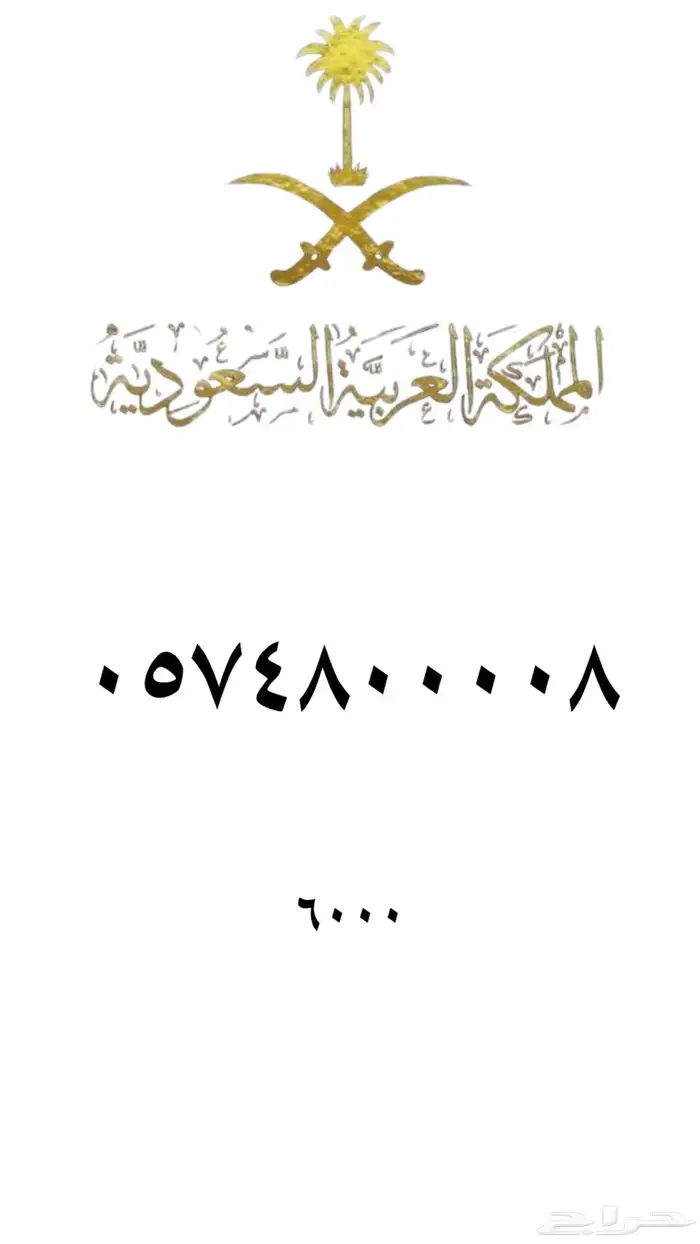 المملكة العربية السعودية
٠٥٧٤٨٠٠٠٠٨
٦٠٠٠
حراج